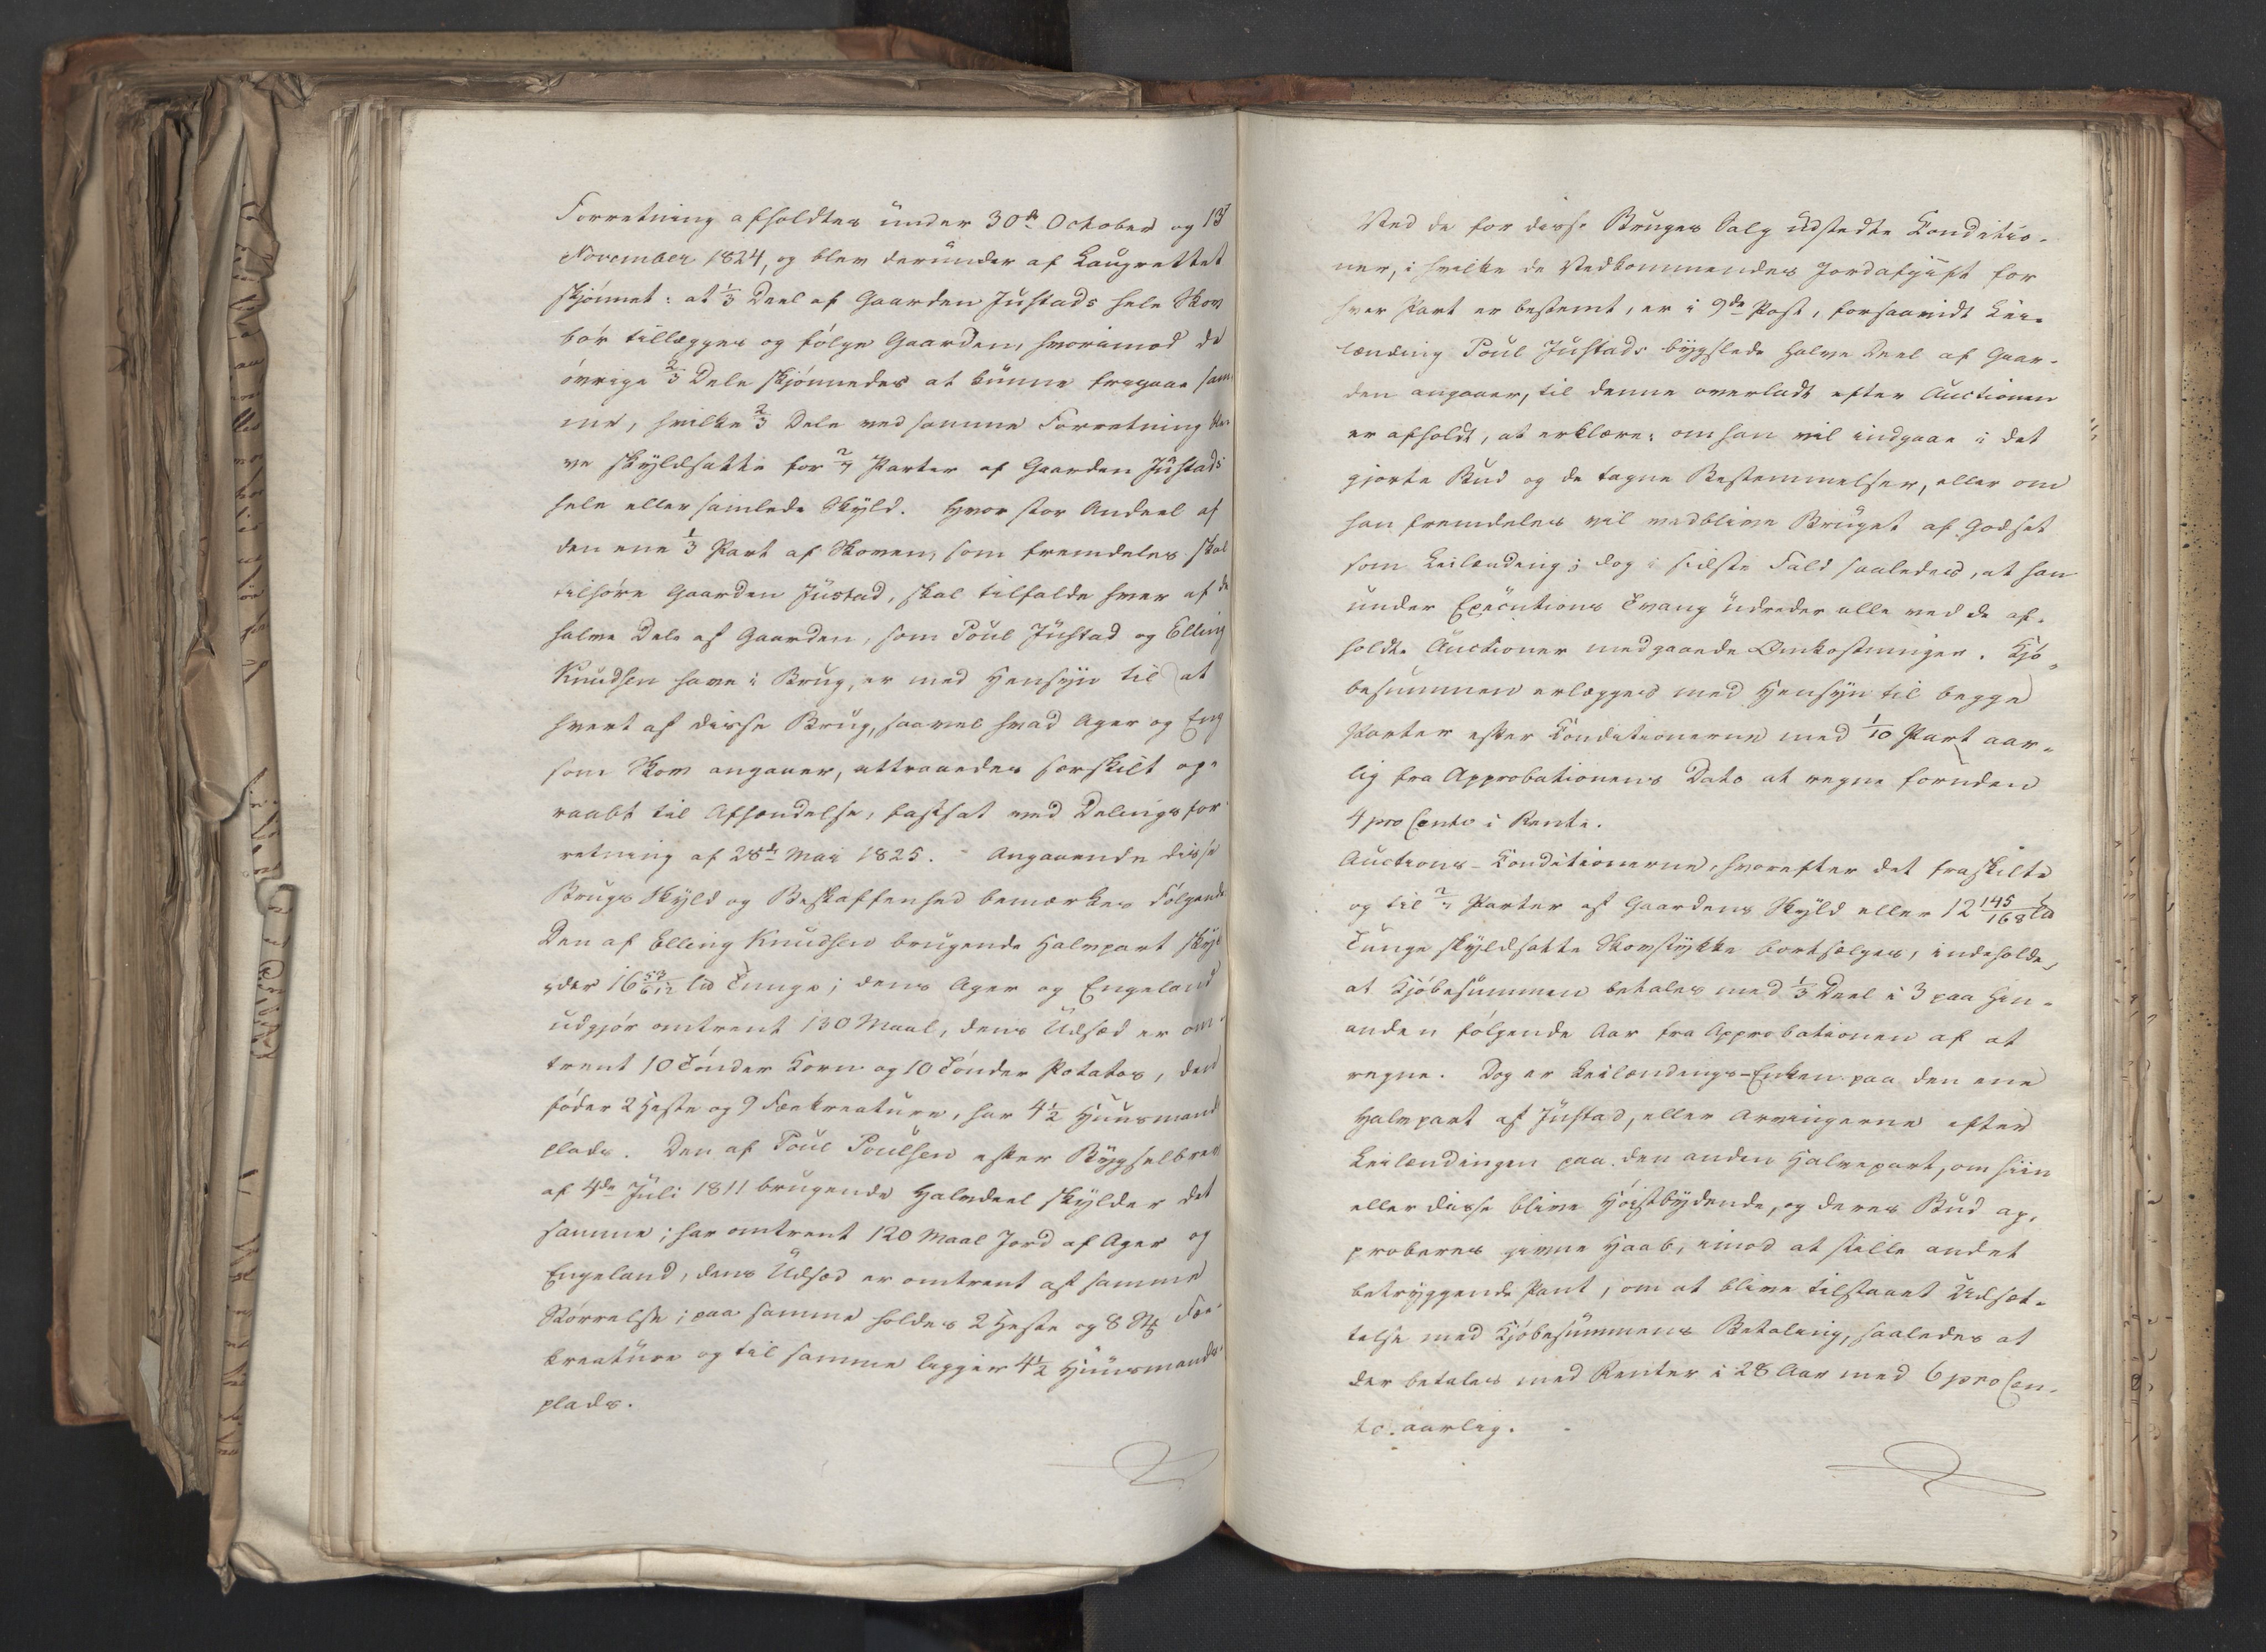 Forretning afholdtes under 30de October og 13
November 1824, og blev derunder af Laugrettet
skjönnet: at 1/3 Deel af Gaarden Justads hele Skov
bör tillægges og fölge Gaarden, hvorimod de
övrige 2/3 Dele skjönnedes at kunne fragaae sam-
me, hvilke 2/3 Dele ved samme Forretning ble-
ve skyldsatte for 2/7 Parter af Gaarden Justads
hele eller samlede Skyld. Hvor stor Andeel af
den ene 1/3 Part af Skoven, som fremdeles skal
tilhöre Gaarden Justad, skal tilfalde hver af de
halve Dele af Gaarden, som Poul Justad og Elling
Knudsen have i Brug, er med Hensyn til at
hvert af disse Brug, saavel hvad Ager og Eng
som Skov angaaer, attraaedes særskilt op-
raabt til Afhændelse, fastsat ved Delingsfor-
retning af 28de Mai 1825. - Angaaende disse
Brugs Skyld og Beskaffenhed bemærkes Fölgende
Den af Elling Knudsen brugende Halvpart skyl-
der 16 53/612 Lb Tunge; dens Ager og Engeland
udgjör omtrent 130 Maal, dens Udsæd er om-
trent 10 Tönder Korn og 10 Tönder Potatos, den
föder 2 Heste og 9 Fækreature, har 4½ Huusmands
plads. Den af Poul Poulsen efter Bygselbrev
af 4de Juli 1811 brugende Halvdeel skylder det
samme; har omtrent 120 Maal Jord af Ager og
Engeland, dens Udsæd er omtrent af samme
Störrelse; paa samme holdes 2 Heste og 8 Stk Fæe-
kreature og til samme ligger 4½ Huusmands-
plads.
Ved de for disse Bruges Salg udstedte Conditio-
ner, i hvilke de Vedkommendes Jordafgift for
hver Part er bestemt, er i 9de Post, forsaavidt Lei-
lænding Poul Justads bygslede halve Deel af Gaar-
den angaaer, til denne overladt efter Auctionen
er afholdt, at erklære: om han vil indgaae i det
gjorte Bud og de tagne Bestemmelser, eller om
han fremdeles vil vedblive Bruget af Godset
som Leilænding; dog i sidste Fald saaledes, at han
under Executions Tvang udreder alle ved de af-
holdte Auctioner medgaaende Omkostninger. Kjö-
besummen erlægges med Hensyn til begge
Parter efter Conditionerne med 1/10 Part aar-
lig fra Approbationens Dato at regne foruden
4 pro Cento i Rente.
Auctions-Conditionerne, hvorefter det fraskilte
og til 2/7 Parter af Gaardens Skyld eller 12 145/168 Lb
Tunge skyldsatte Skovstykke bortsælges, indeholde,
at Kjöbesummen betales med 1/3 Deel i 3 paa hin-
anden fölgende Aar fra Approbationen af at
regne. Dog er Leilændings-Enken paa den ene
Halvpart af Justad, eller Arvingerne efter
Leilændingen paa den anden Halvepart, om hiin
eller disse blive Höistbydende, og deres Bud ap-
proberes givne Haab, imod at stille andet
betryggende Pant, om at blive tilstaaet Udsæt-
telse med Kjöbesummens Betaling, saaledes at
der betales med Renter i 28 Aar med 6 pro Cen-
to aarlig.